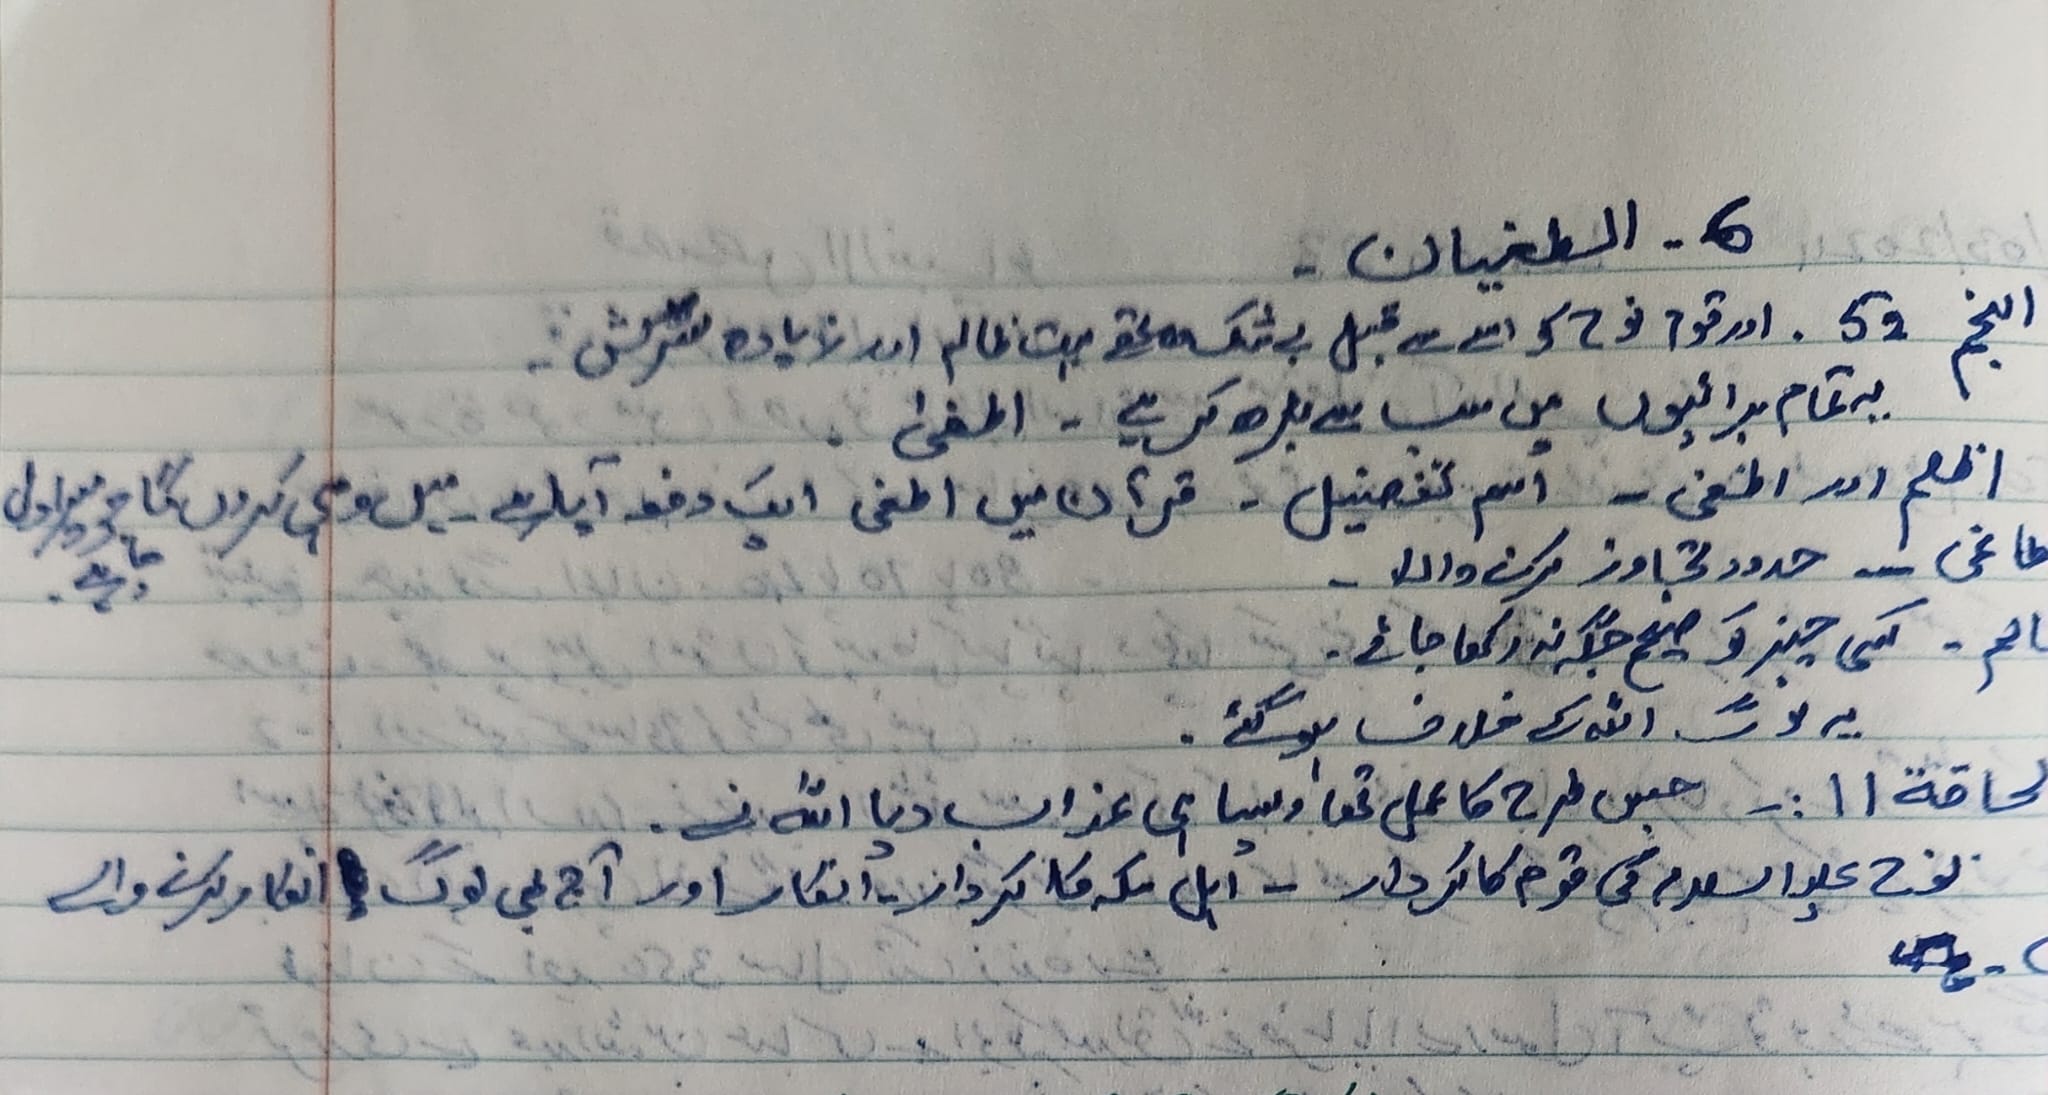 6 - الطغیان -
النجم 52 . اور قوم نوح کو اس سے قبل بے شک وہ تھے بہت ظالم اور زیادہ سرکش :-
یہ تمام برائیوں میں سب سے بڑھ کر ہے - اطغیٰ .
اظلم اور اطغیٰ - اسم تفضیل - قرآن میں اطغی ایک دفعہ آیا ہے - میں وہی کروں گا جو میرا دل
چاہے .
طاغی - حدود تجاوز کرنے والا -
الم - کسی چیز کو صحیح جگہ نہ رکھا جائے -
یہ لوگ اللہ کے خلاف ہو گئے .
لحاقة 11 :- جس طرح کا عمل تھا ویسا ہی عذاب دیا اللہ نے .
نوح علیہ السلام کی قوم کا کردار - اہل مکہ کا کردار - انکار اور آج بھی لوگ انکار کرنے والے